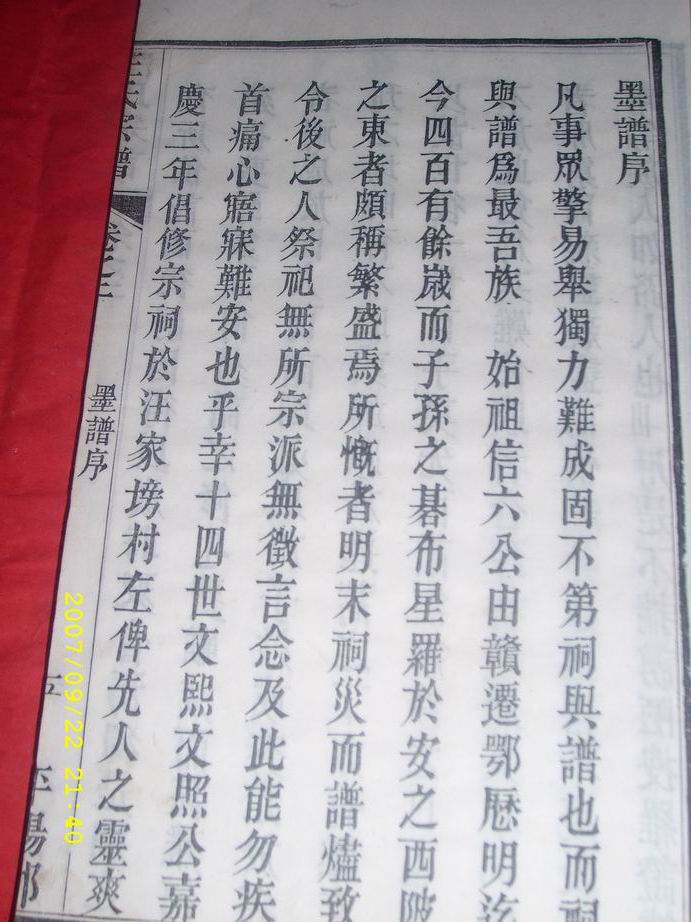 墨譜序
凡事眾擎易舉獨力難成固不第祠與譜也而祠
與譜爲最吾族 始祖信六公由贛遷鄂歷明迄
今四百有餘歲而子孫之碁布星羅於安之西陂
之東者頗稱繁盛焉所慨者明末祠災而譜燼致
令後之人祭祀無所宗派無徵言念及此能勿疾
首痛心寤寐難安也乎幸十四世文熙文照公嘉
慶三年倡修宗祠於汪家塝村左俾先人之靈爽
氏宗譜 卷之三 墨譜序 五 平陽郡
2007/09/22 21:40